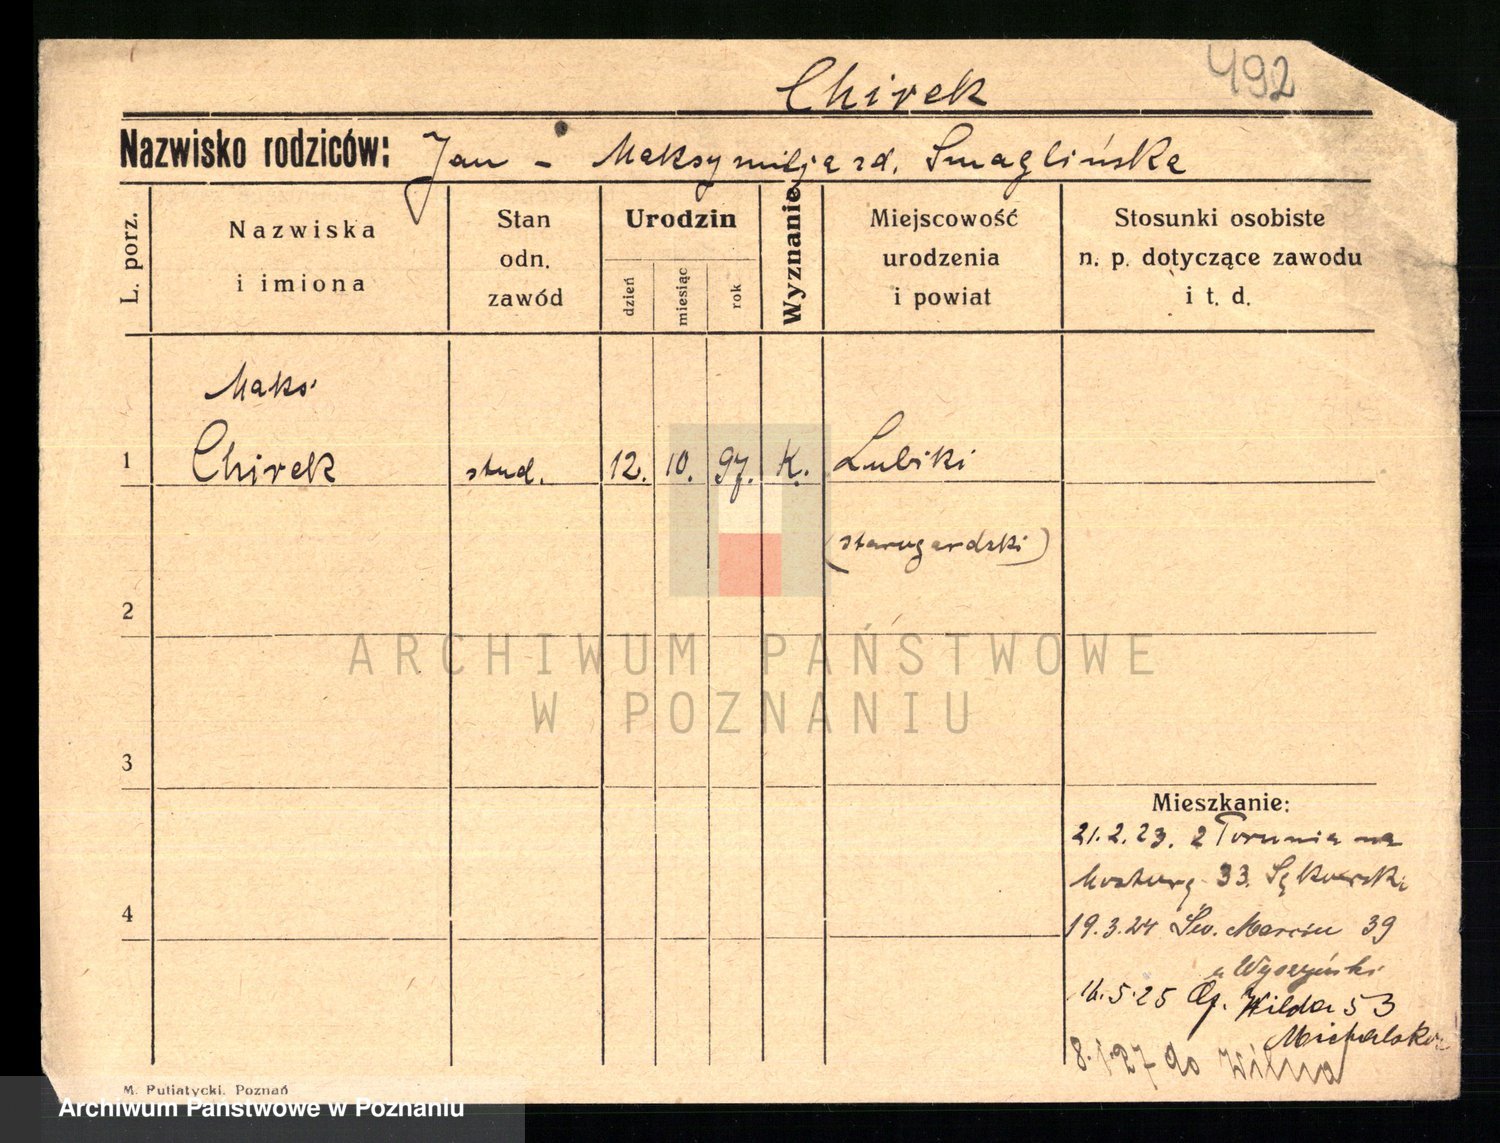 492
Chirek
Nazwisko rodziców: Jan – Maksymilja rd. Smaglińska
L. porz.
Nazwiska i imiona
Stan odn. zawód
Urodzin
dzień
miesiąc
rok
Wyznanie
Miejscowość urodzenia i powiat
Stosunki osobiste n. p. dotyczące zawodu i t. d.
Maks
1 Chirek stud. 12. 10. 97. K. Lubiki
(starogardzki)
2
3
4
ARCHIWUM PAŃSTWOWE
W POZNANIU
Mieszkanie:
21.2.23. z Torunia na
33.
19.3.24 Św. Marcin 39
u Wyszyński
16.5.25 Wilda 53
Michalska
8.1.27 do Wilna
M. Putiatycki, Poznań
Archiwum Państwowe w Poznaniu